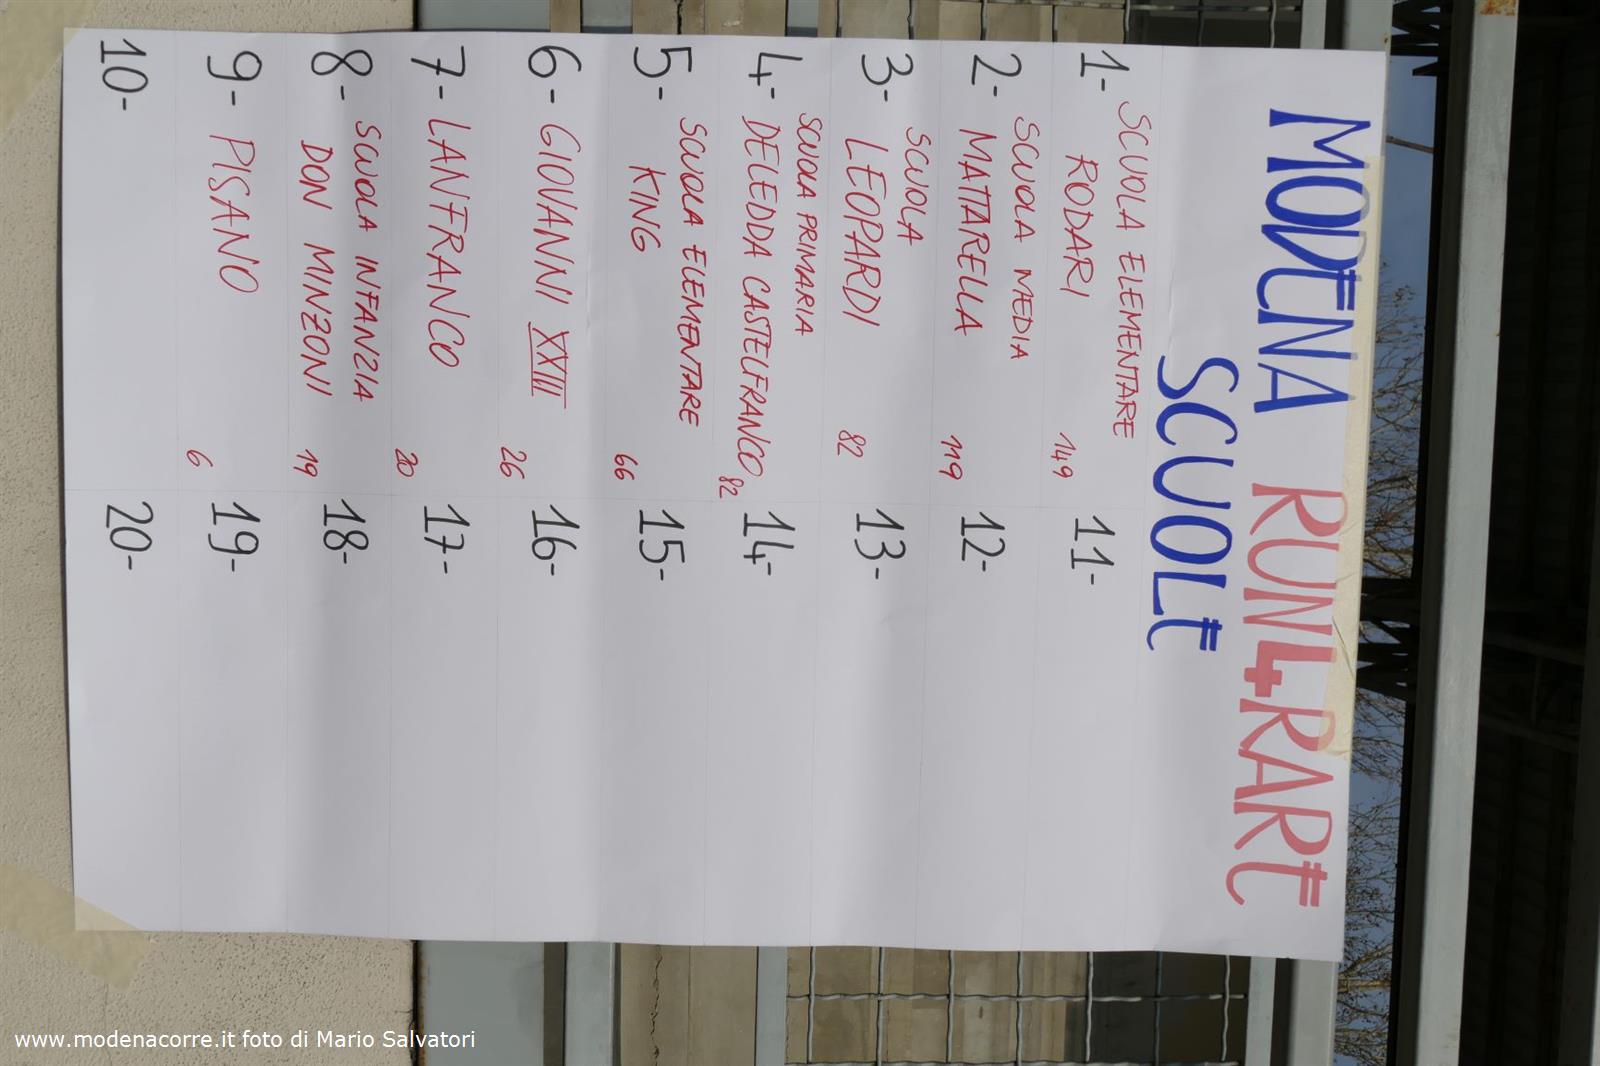 MODENA RUN4RARE
SCUOLE
1- SCUOLA ELEMENTARE
RODARI 149
2- SCUOLA MEDIA
MATTARELLA 119
3- SCUOLA
LEOPARDI 82
4- SCUOLA PRIMARIA
DELEDDA CASTELFRANCO 82
5- SCUOLA ELEMENTARE
KING 66
6- GIOVANNI XXIII 26
7- LANFRANCO 20
8- SCUOLA INFANZIA
DON MINZONI 19
9- PISANO 6
10-
11-
12-
13-
14-
15-
16-
17-
18-
19-
20-
www.modenacorre.it foto di Mario Salvatori